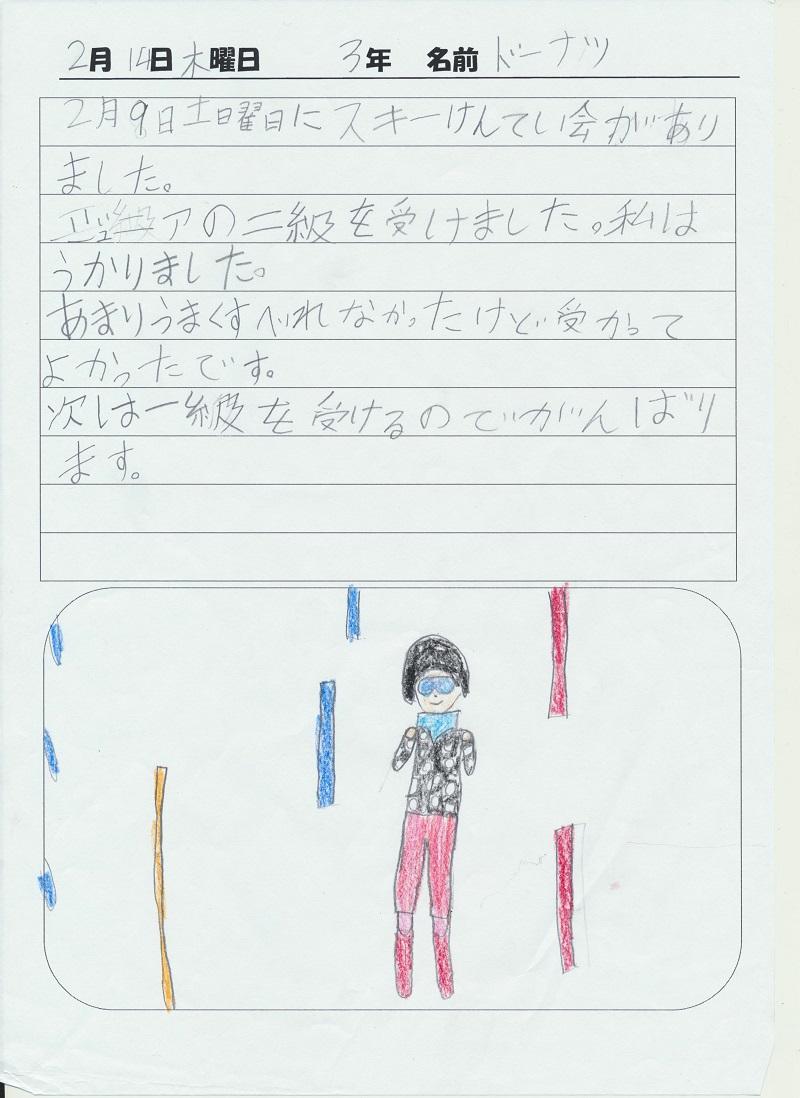 2月14日木曜日 3年 名前 ドーナツ
2月9日土日曜日にスキーけんてい会があり
ました。
アの二級を受けました。私は
うかりました。
あまりうまくすべれなかったけど受かって
よかったです。
次は一級を受けるのでがんばり
ます。